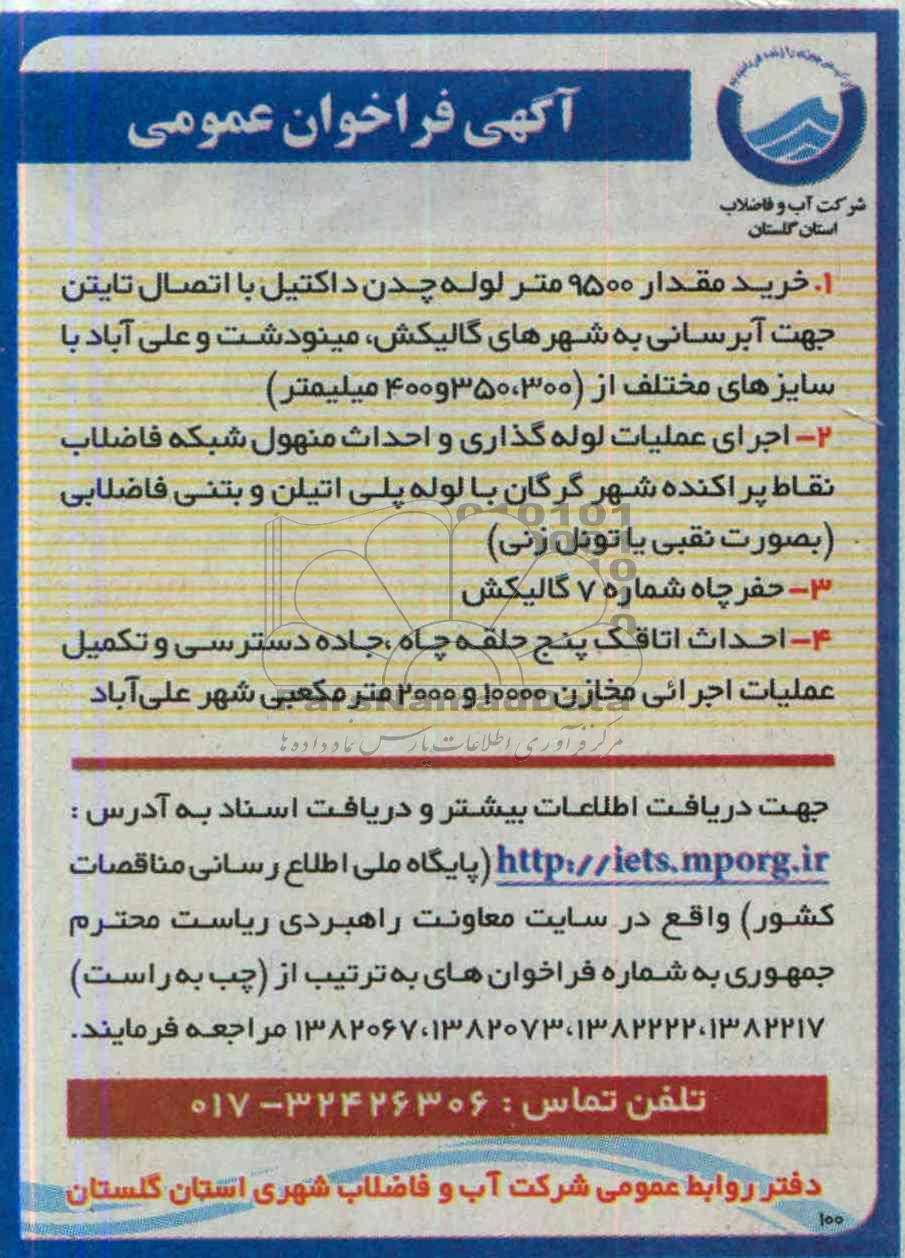 آگهی فراخوان عمومی
شرکت آب و فاضلاب
استان گلستان
۱. خرید مقدار ۹۵۰۰ متر لوله چدن داکتیل با اتصال تایتن
جهت آبرسانی به شهرهای گالیکش، مینودشت و علی آباد با
سایزهای مختلف از (۳۰۰،۳۵۰و۴۰۰ میلیمتر)
۲- اجرای عملیات لوله گذاری و احداث منهول شبکه فاضلاب
نقاط پراکنده شهر گرگان با لوله پلی اتیلن و بتنی فاضلابی
(بصورت نقبی یا تونل زنی)
۳- حفر چاه شماره ۷ گالیکش
۴- احداث اتاقک پنج حلقه چاه ،جاده دسترسی و تکمیل
عملیات اجرائی مخازن ۱۰۰۰۰ و ۲۰۰۰ متر مکعبی شهر علی‌آباد
ParsNamadData
مرکز فرآوری اطلاعات پارس نماد داده ها
جهت دریافت اطلاعات بیشتر و دریافت اسناد به آدرس :
http://iets.mporg.ir (پایگاه ملی اطلاع رسانی مناقصات
کشور) واقع در سایت معاونت راهبردی ریاست محترم
جمهوری به شماره فراخوان های به ترتیب از (چپ به راست)
۱۳۸۲۰۶۷،۱۳۸۲۰۷۳،۱۳۸۲۲۲۲،۱۳۸۲۲۱۷ مراجعه فرمایند.
تلفن تماس : ۳۲۴۲۶۳۰۶- ۰۱۷
دفتر روابط عمومی شرکت آب و فاضلاب شهری استان گلستان
۱۰۰